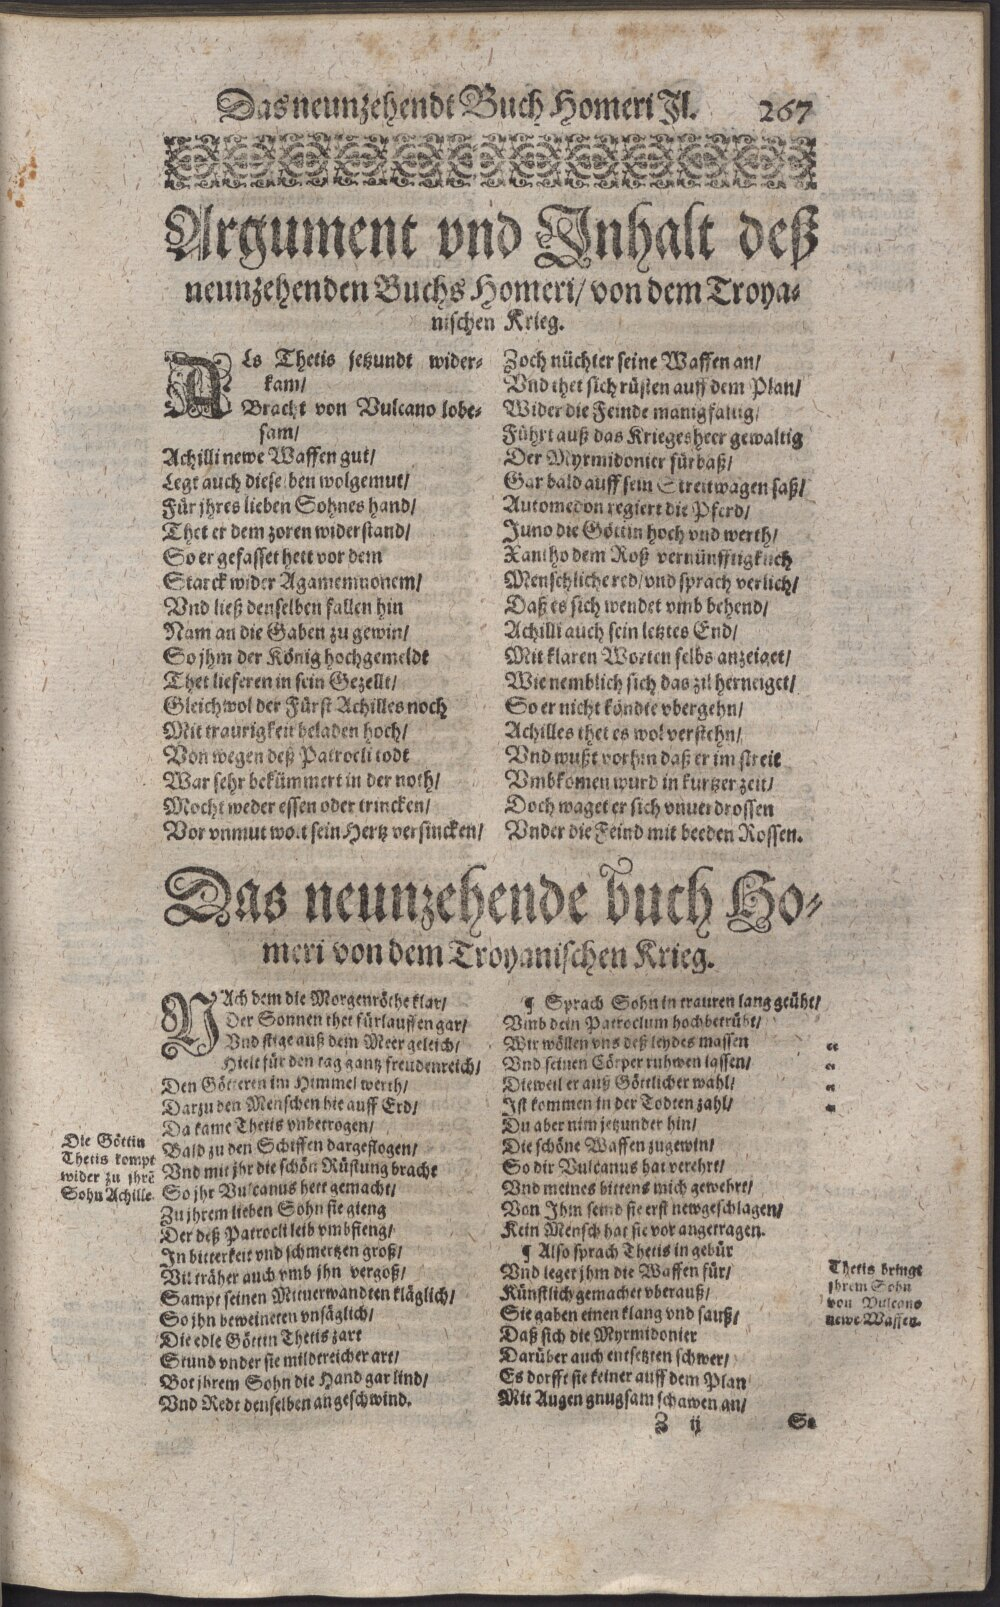 Das neunzehendt Buch Homeri Jl. 267
Argument vnd Jnhalt deß
neunzehenden Buchs Homeri/ von dem Troya-
nischen Krieg.
ALs Thetis jetzundt wider-
kam/
Bracht von Vulcano lobe-
sam/
Achilli newe Waffen gut/
Legt auch dieselben wolgemut/
Für jhres lieben Sohnes hand/
Thet er dem zoren widerstand/
So er gefasset hett vor dem
Starck wider Agamemnonem/
Vnd ließ denselben fallen hin
Nam an die Gaben zu gewin/
So jhm der König hochgemeldt
Thet lieferen in sein Gezellt/
Gleichwol der Fürst Achilles noch
Mit traurigkeit beladen hoch/
Von wegen deß Patrocli todt
War sehr bekümmert in der noth/
Mocht weder essen oder trincken/
Vor vnmut wolt sein Hertz versincken/
Zoch nüchter seine Waffen an/
Vnd thet sich rüsten auff dem Plan/
Wider die Feinde manigfaltig/
Führt auß das Kriegesheer gewaltig
Der Myrmidonier fürbaß/
Gar bald auff sein Streitwagen saß/
Automedon regiert die Pferd/
Juno die Göttin hoch vnd werth/
Xantho dem Roß vernünfftigklich
Menschliche red/ vnd sprach verlich/
Daß es sich wendet vmb behend/
Achilli auch sein letztes End/
Mit klaren Worten selbs anzeiget/
Wie nemblich sich das zil herneiget/
So er nicht köndte vbergehn/
Achilles thet es wol verstehn/
Vnd wußt vorhin daß er im streit
Vmbkomen wurd in kurtzer zeit/
Doch waget er sich vnuerdrossen
Vnder die Feind mit beeden Rossen.
Das neunzehende buch Ho-
meri von dem Troyanischen Krieg.
NAch dem die Morgenröthe klar/
Der Sonnen thet fürlauffen gar/
Vnd stige auß dem Meer geleich/
Hielt für den tag gantz freudenreich/
Den Götteren im Himmel werth/
Darzu den Menschen hie auff Erd/
Da kame Thetis vnbetrogen/
Bald zu den Schiffen dargeflogen/
Vnd mit jhr die schön Rüstung bracht
So jhr Vulcanus hett gemacht/
Zu jhrem lieben Sohn sie gieng
Der deß Patrocli leib vmbfieng/
In bitterkeit vnd schmertzen groß/
Vil träher auch vmb jhn vergoß/
Sampt seinen Mituerwandten kläglich/
So jhn beweineten vnsäglich/
Die edle Göttin Thetis zart
Stund vnder sie miltreicher art/
Bot jhrem Sohn die Hand gar lind/
Vnd Redt denselben an geschwind.
Die Göttin
Thetis kompt
wider zu jhrẽ
Sohn Achille.
¶ Sprach Sohn in trauren lang geübt/
Vmb dein Patroclum hochbetrübt/
Wir wöllen vns deß leydes massen
Vnd seinen Cörper ruhwen lassen/
Dieweil er auß Göttlicher wahl/
Jst kommen in der Todten zahl/
Du aber nim jetzunder hin/
Die schöne Waffen zu gewin/
So dir Vulcanus hat verehrt/
Vnd meines bittens mich gewehrt/
Von Jhm seind sie erst newgeschlagen/
Kein Mensch hat sie vor angetragen.
¶ Also sprach Thetis in gebür
Vnd leget jhm die Waffen für/
Künstlich gemachet vberauß/
Sie gaben einen klang vnd sauß/
Daß sich die Myrmidonier
Darüber auch entsetzten schwer/
Es dorfft sie keiner auff dem Plan
Mit Augen gnugsam schawen an/
„
„
„
„
Thetis bringt
jhrem Sohn
von Vulcano
newe Waffen.
Z ij So